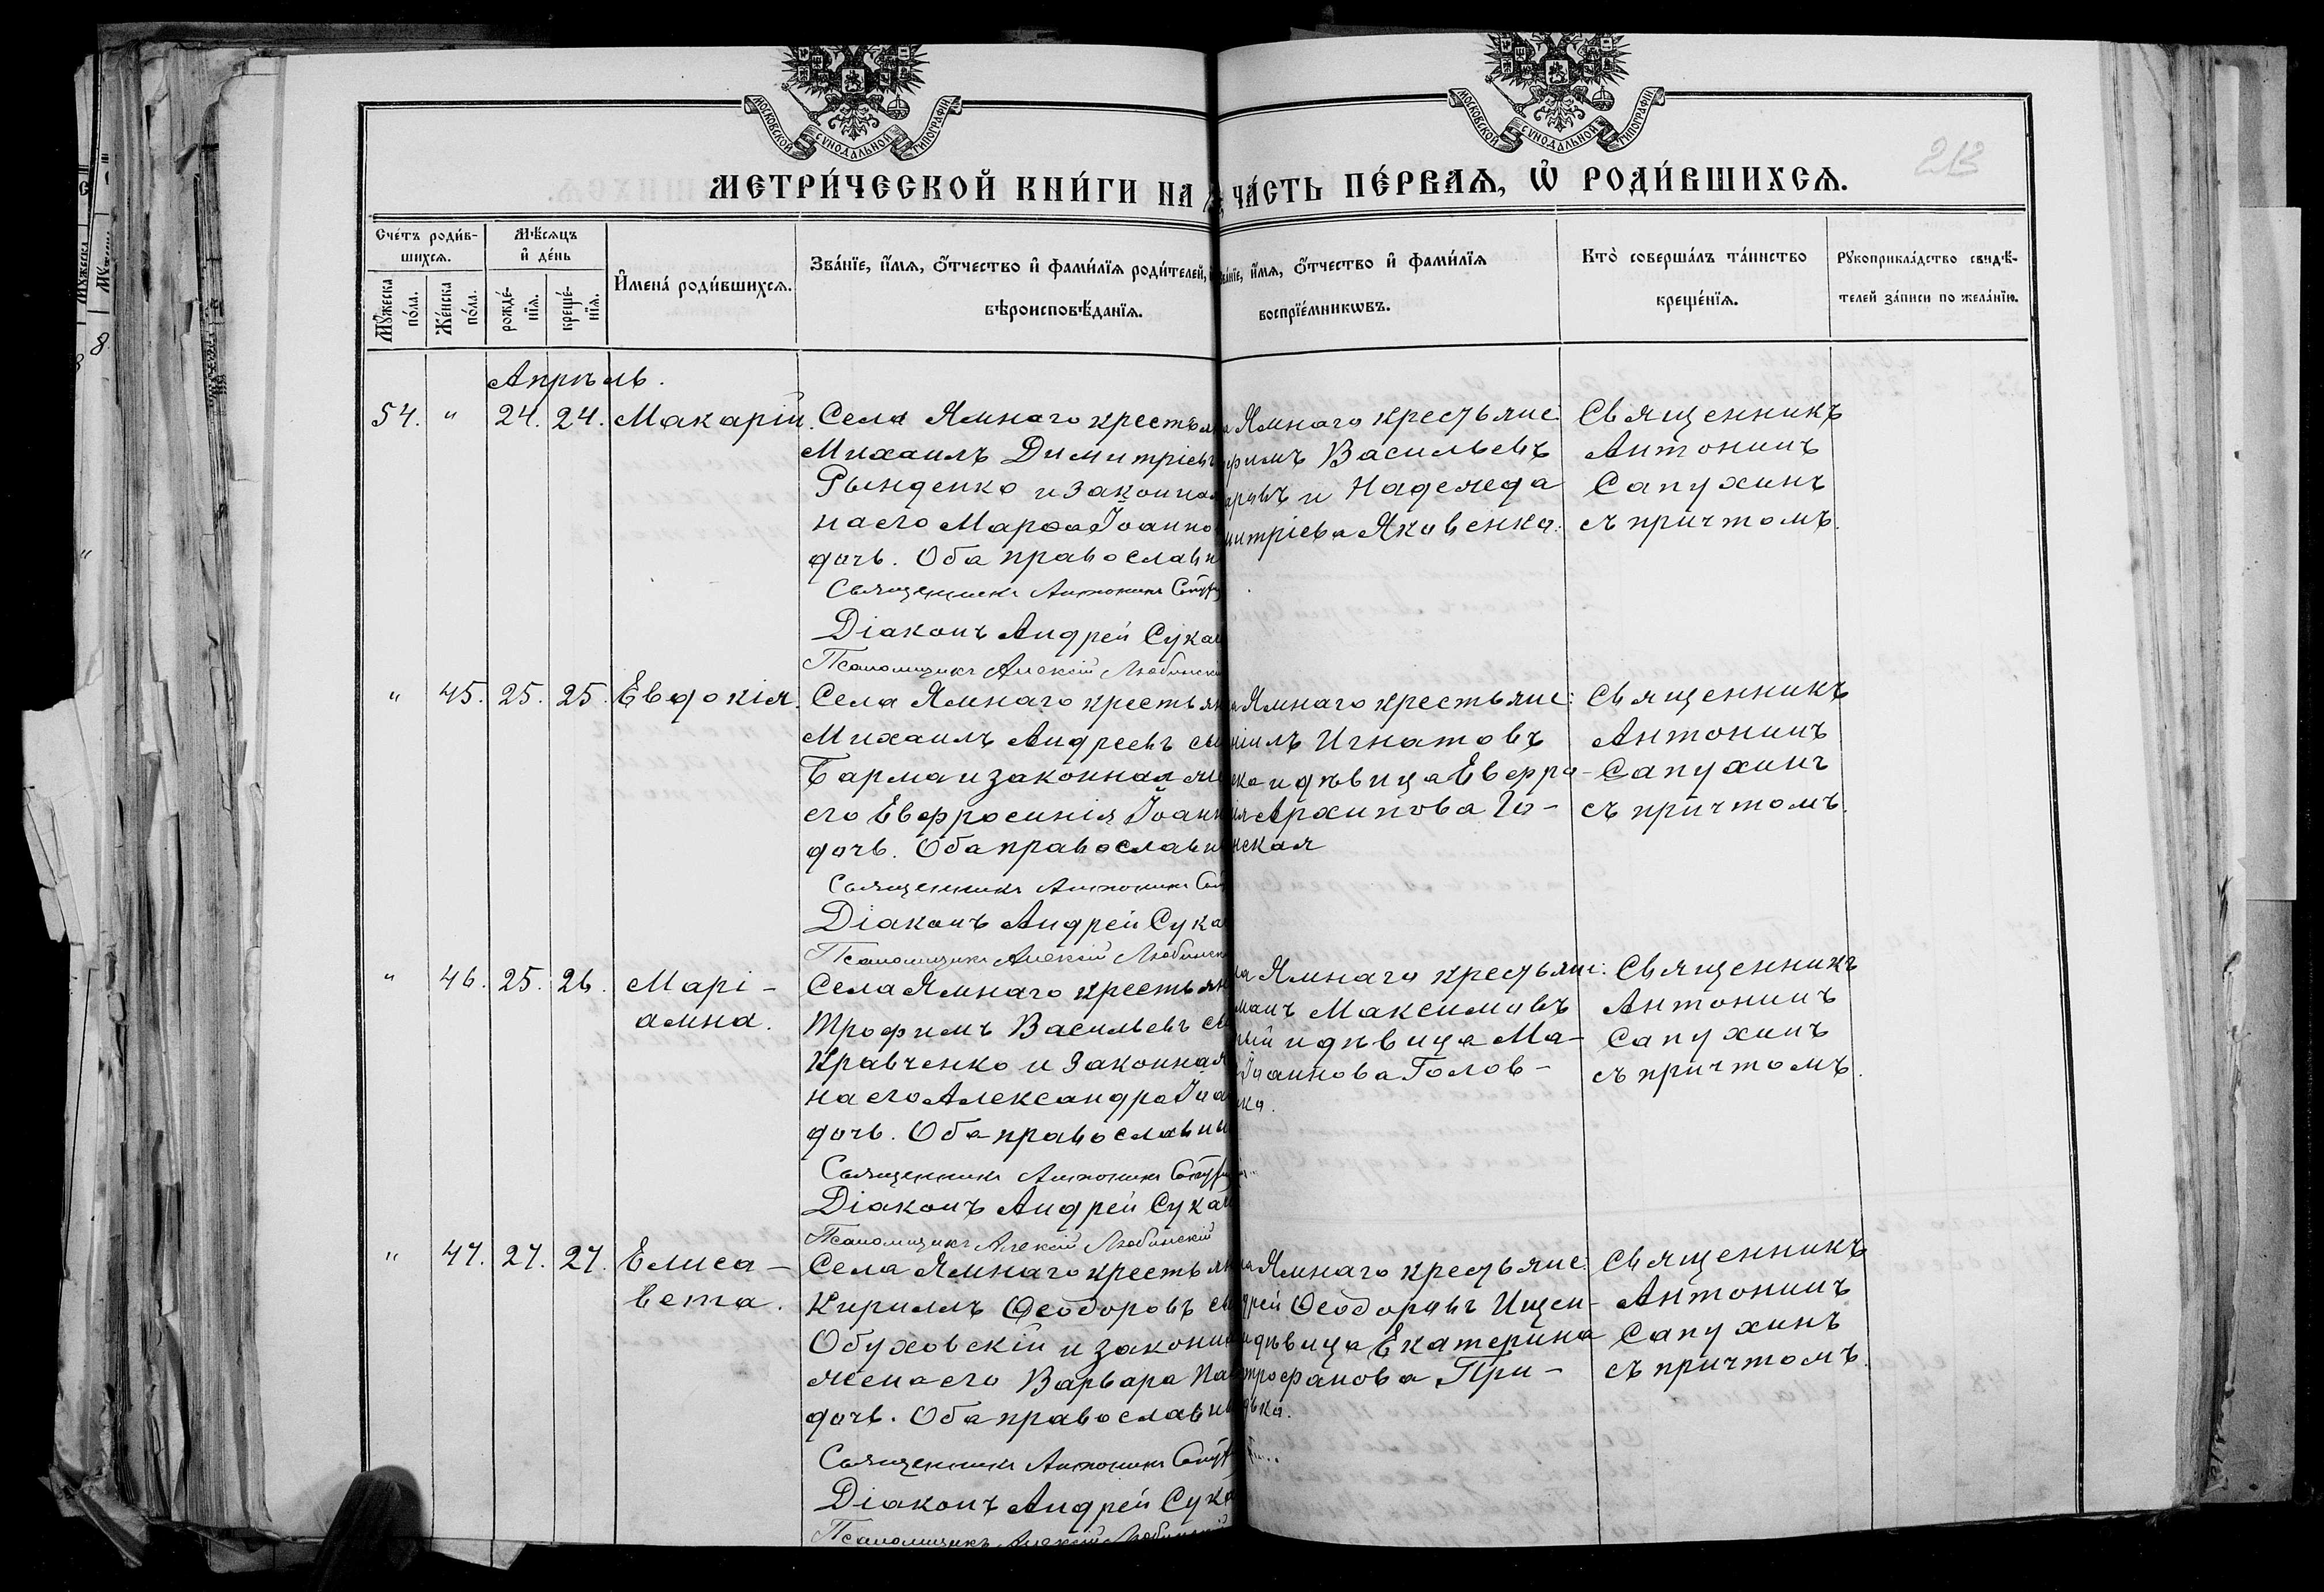 МОСКОВСКОЙ СѴНОДАЛЬНОЙ ТИПОГРАФІИ
МОСКОВСКОЙ СѴНОДАЛЬНОЙ ТИПОГРАФІИ
213
МЕТРИ́ЧЕСКОЙ КНИ́ГИ НА
ЧА́СТЬ ПЕ́РВАѦ, Ѡ҆ РОДИ́ВШИХСѦ.
Сче́тъ роди́в-
шихсѧ.
Мꙋ́жеска по́ла.
Же́нска по́ла.
Мѣ́сѧцъ
и҆ де́нь
рожде́нїѧ.
креще́нїѧ.
И҆мена̀ роди́вшихсѧ.
Зва́нїе, и҆́мѧ, ѻ҆́тчество и҆ фами́лїѧ роди́телей,
вѣроисповѣ́данїѧ.
и҆́мѧ, ѻ҆́тчество и҆ фами́лїѧ
воспрїе́мникѡвъ.
Кто̀ соверша́лъ та́инство
креще́нїѧ.
Рꙋкоприкла́дство свидѣ́-
телей за́писи по жела́нїю.
Апрѣль.
54. " 24. 24. Макарій.
Села Ямнаго крестьян
Михаилъ Димитріевъ
Рынденко и законная
на его Марѳа Іоанно
дочь. Оба православн
Священникъ Антонинъ
Діаконъ Андрей Сука
Псаломщикъ Алексій Любинскій
Ямнаго крестьяне:
фимъ Васильевъ
и Надежда
митріева Яковенкова.
Священникъ
Антонинъ
Сапухинъ
съ причтомъ.
" 45. 25. 25. Евдокія.
Села Ямнаго крестьян
Михаилъ Андреевъ сы
Барма и законная же
его Евфросинія Іоанн
дочь. Оба православн
Священникъ Антонинъ
Діаконъ Андрей Сука
Псаломщикъ Алексій Любинск
Ямнаго крестьяне:
ніилъ Игнатовъ
ка и дѣвица Евфра-
Архипова Го-
нская
Священникъ
Антонинъ
Сапухинъ
съ причтомъ.
" 46. 25. 26. Марі-
амна.
Села Ямнаго крестьян
Трофимъ Васильевъ сы
Кравченко и законная
на его Александра Іоа
дочь. Оба православны
Священникъ Антонинъ
Діаконъ Андрей Сука
Псаломщикъ Алексій Любинскій
Ямнаго крестьяне:
манъ Максимовъ
и дѣвица Ма-
Іоаннова Голов-
ка.
Священникъ
Антонинъ
Сапухинъ
съ причтомъ.
" 47. 27. 27. Елиса-
вета.
Села Ямнаго крестьян
Кириллъ Ѳеодоровъ сы
Обуховскій и законна
жена его Варвара Па
дочь. Оба православны
Священникъ Антонинъ
Діаконъ Андрей Сука
Псаломщикъ Алексій Любинскій
Ямнаго крестьяне:
дрей Ѳеодоровъ Ищен-
и дѣвица Екатерина
трофанова При-
дька.
Священникъ
Антонинъ
Сапухинъ
съ причтомъ.